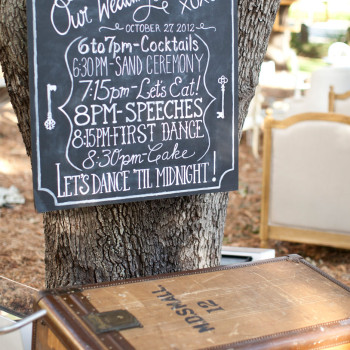 Our Wedding XOXO
OCTOBER 27, 2012
6 to 7pm - Cocktails
6:30 PM - SAND CEREMONY
7:15pm - Let's Eat!
8PM - SPEECHES
8:15PM - FIRST DANCE
8:30pm - Cake
LET'S DANCE 'TIL MIDNIGHT!
MDSMALL
12